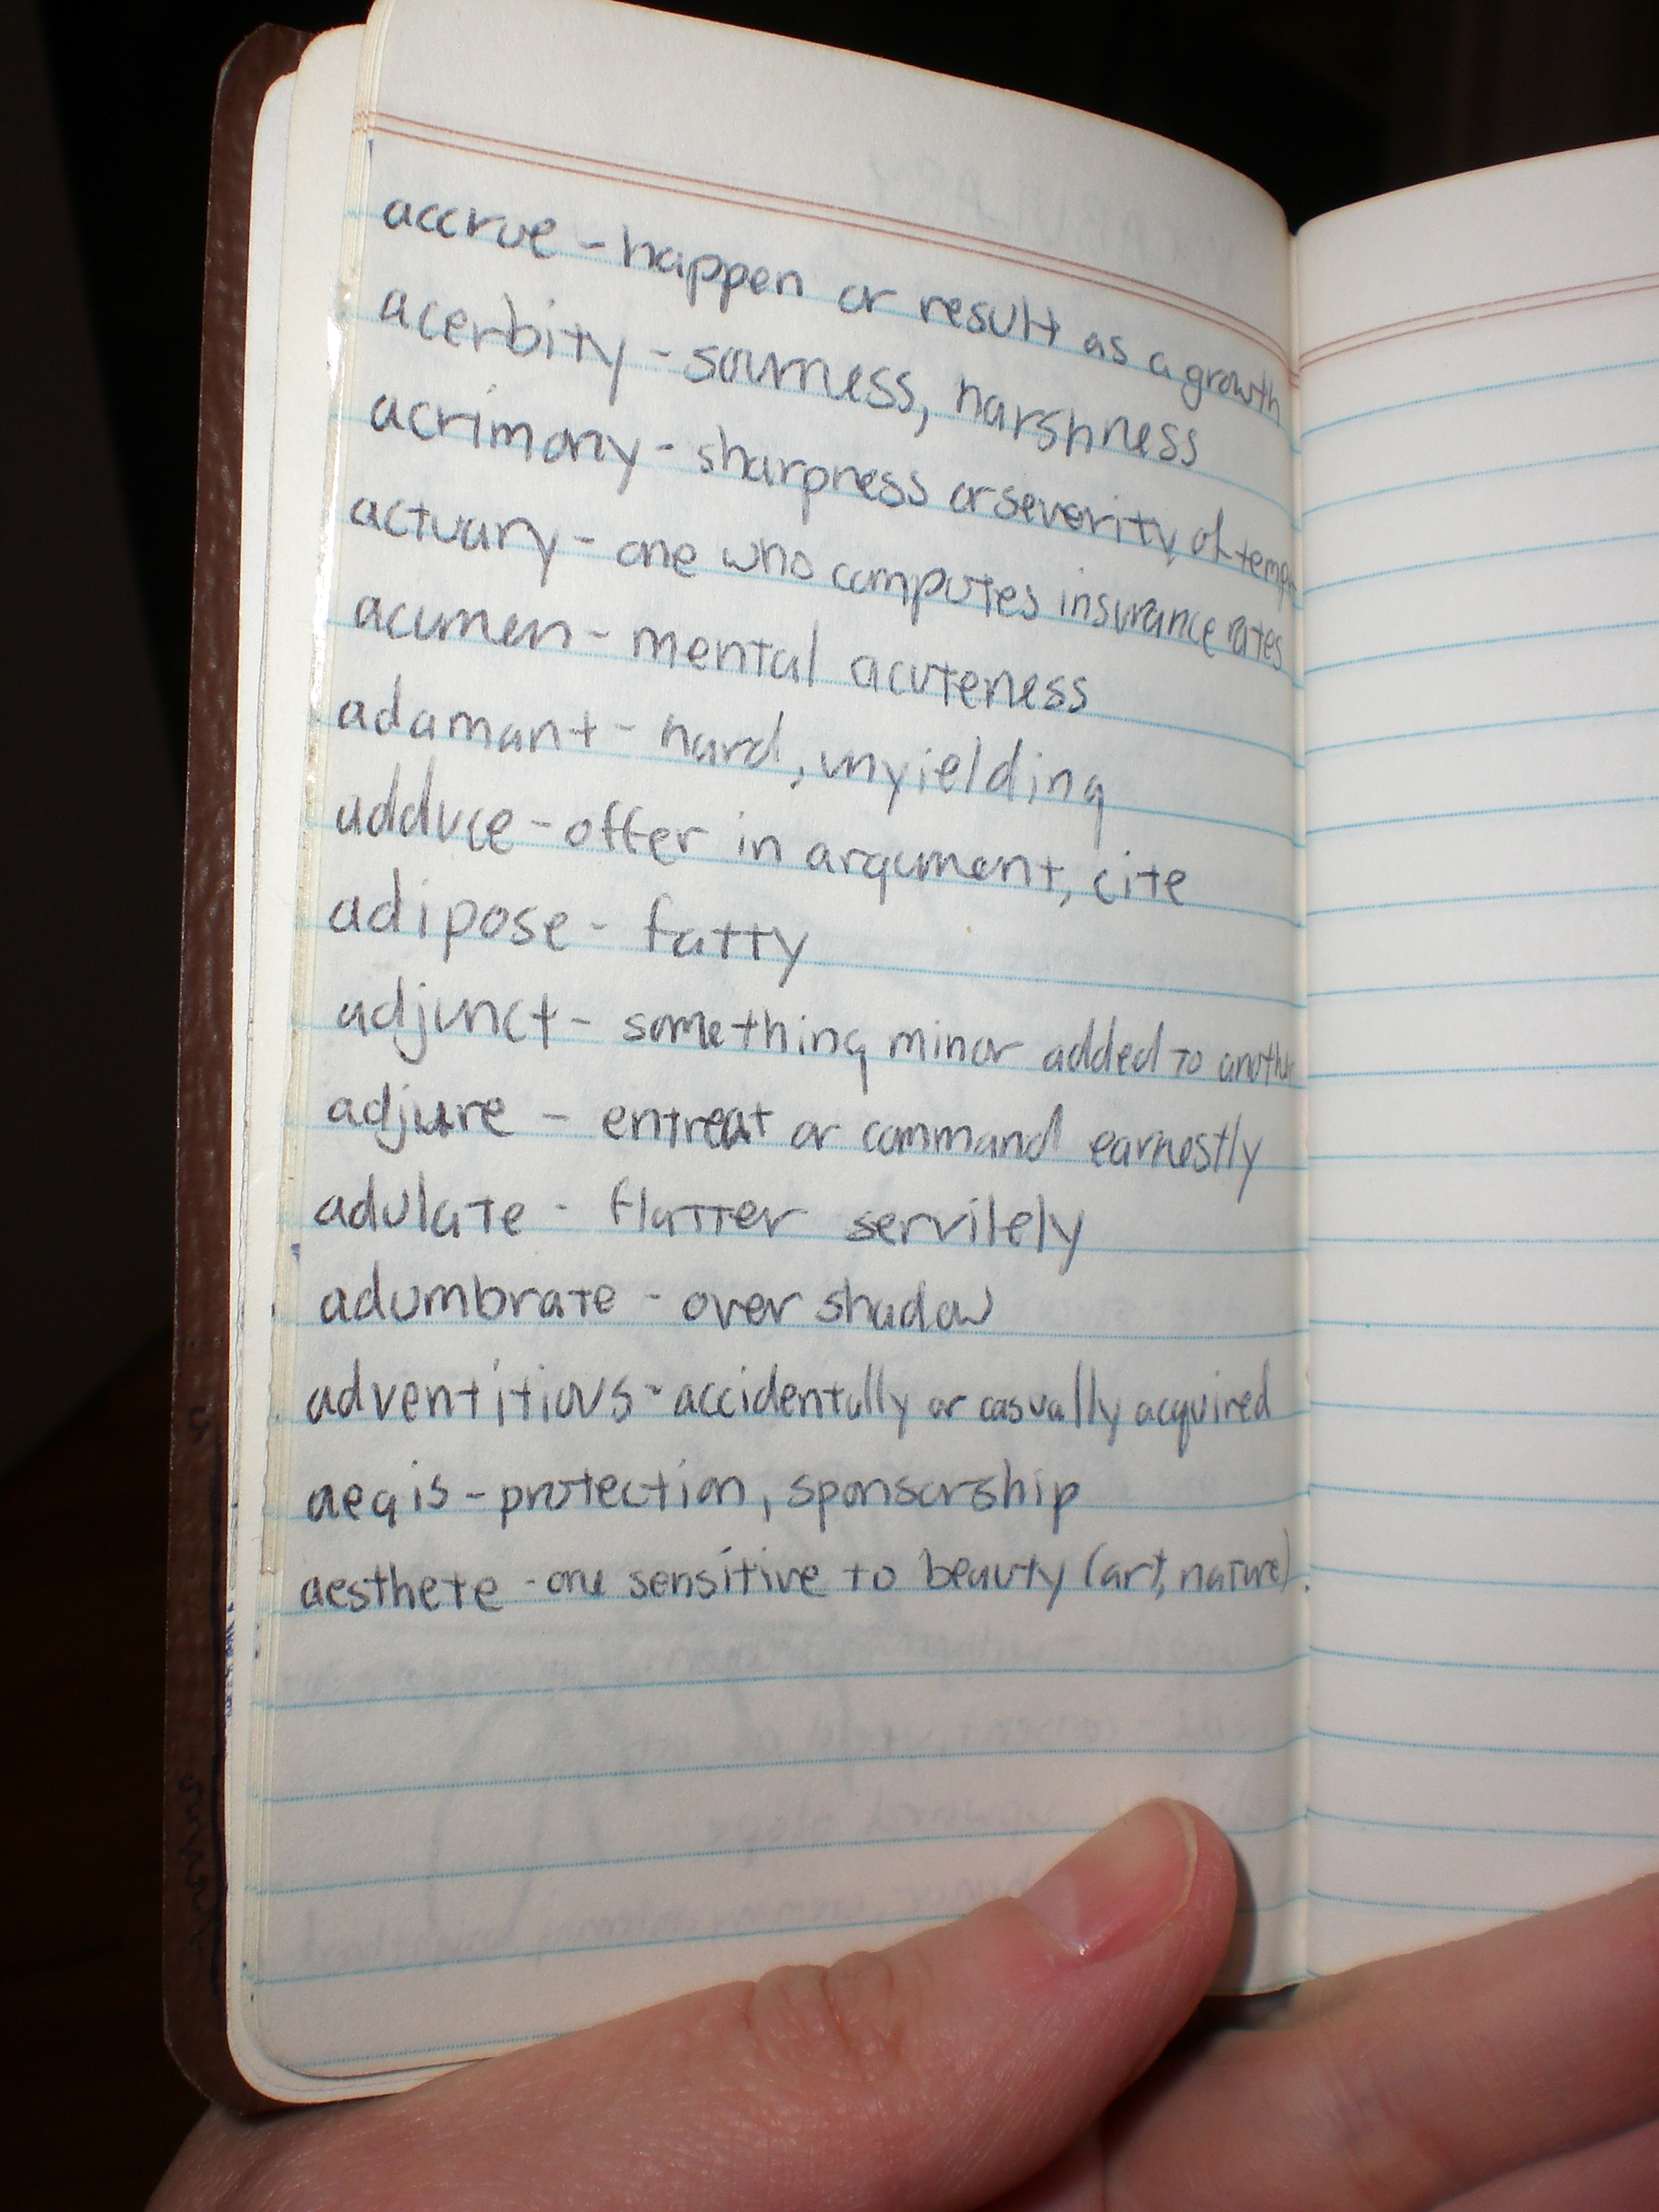 accrue - happen or result as a growth
acerbity - sourness, harshness
acrimony - sharpness or severity of temper
actuary - one who computes insurance rates
acumen - mental acuteness
adamant - hard, unyielding
adduce - offer in argument, cite
adipose - fatty
adjunct - something minor added to another
adjure - entreat or command earnestly
adulate - flatter servilely
adumbrate - over shadow
adventitious - accidentally or casually acquired
aegis - protection, sponsorship
aesthete - one sensitive to beauty (art, nature).